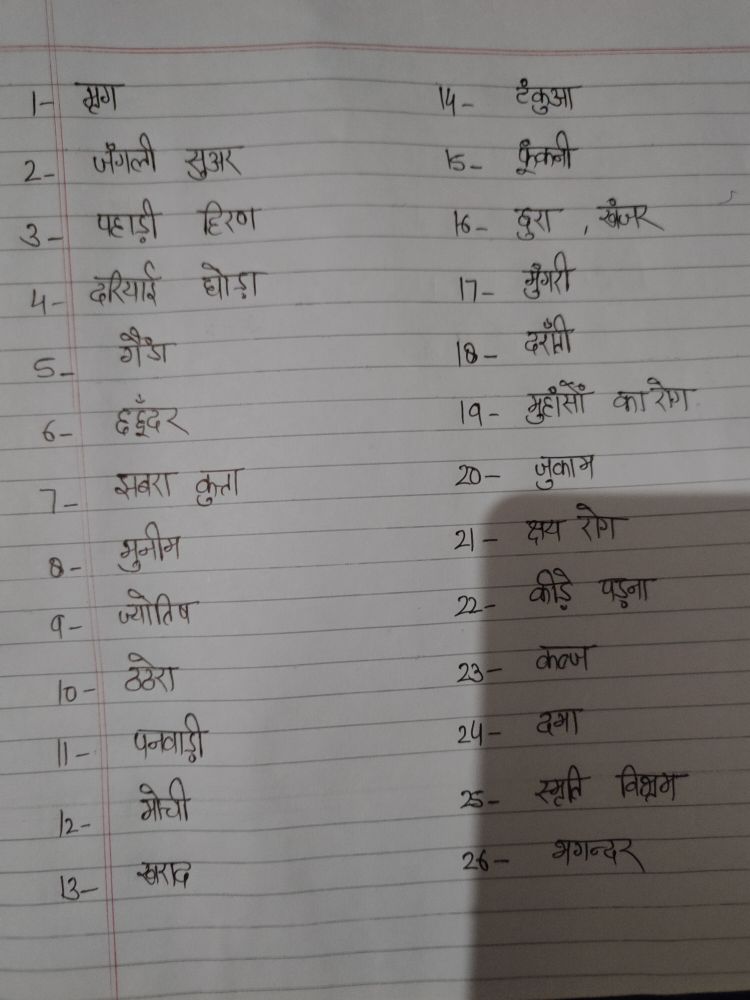 1- मृग
2- जंगली सुअर
3- पहाड़ी हिरण
4- दरियाई घोड़ा
5- गैंडा
6- छछूँदर
7- झबरा कुत्ता
8- मुनीम
9- ज्योतिष
10- ठठेरा
11- पनवाड़ी
12- मोची
13- खराद
14- टंकुआ
15- फूंकनी
16- छुरा , खंजर
17- मुंगरी
18- दराँती
19- मुहांसों का रोग
20- जुकाम
21- क्षय रोग
22- कीड़े पड़ना
23- कब्ज
24- दमा
25- स्मृति विभ्रम
26- भगन्दर